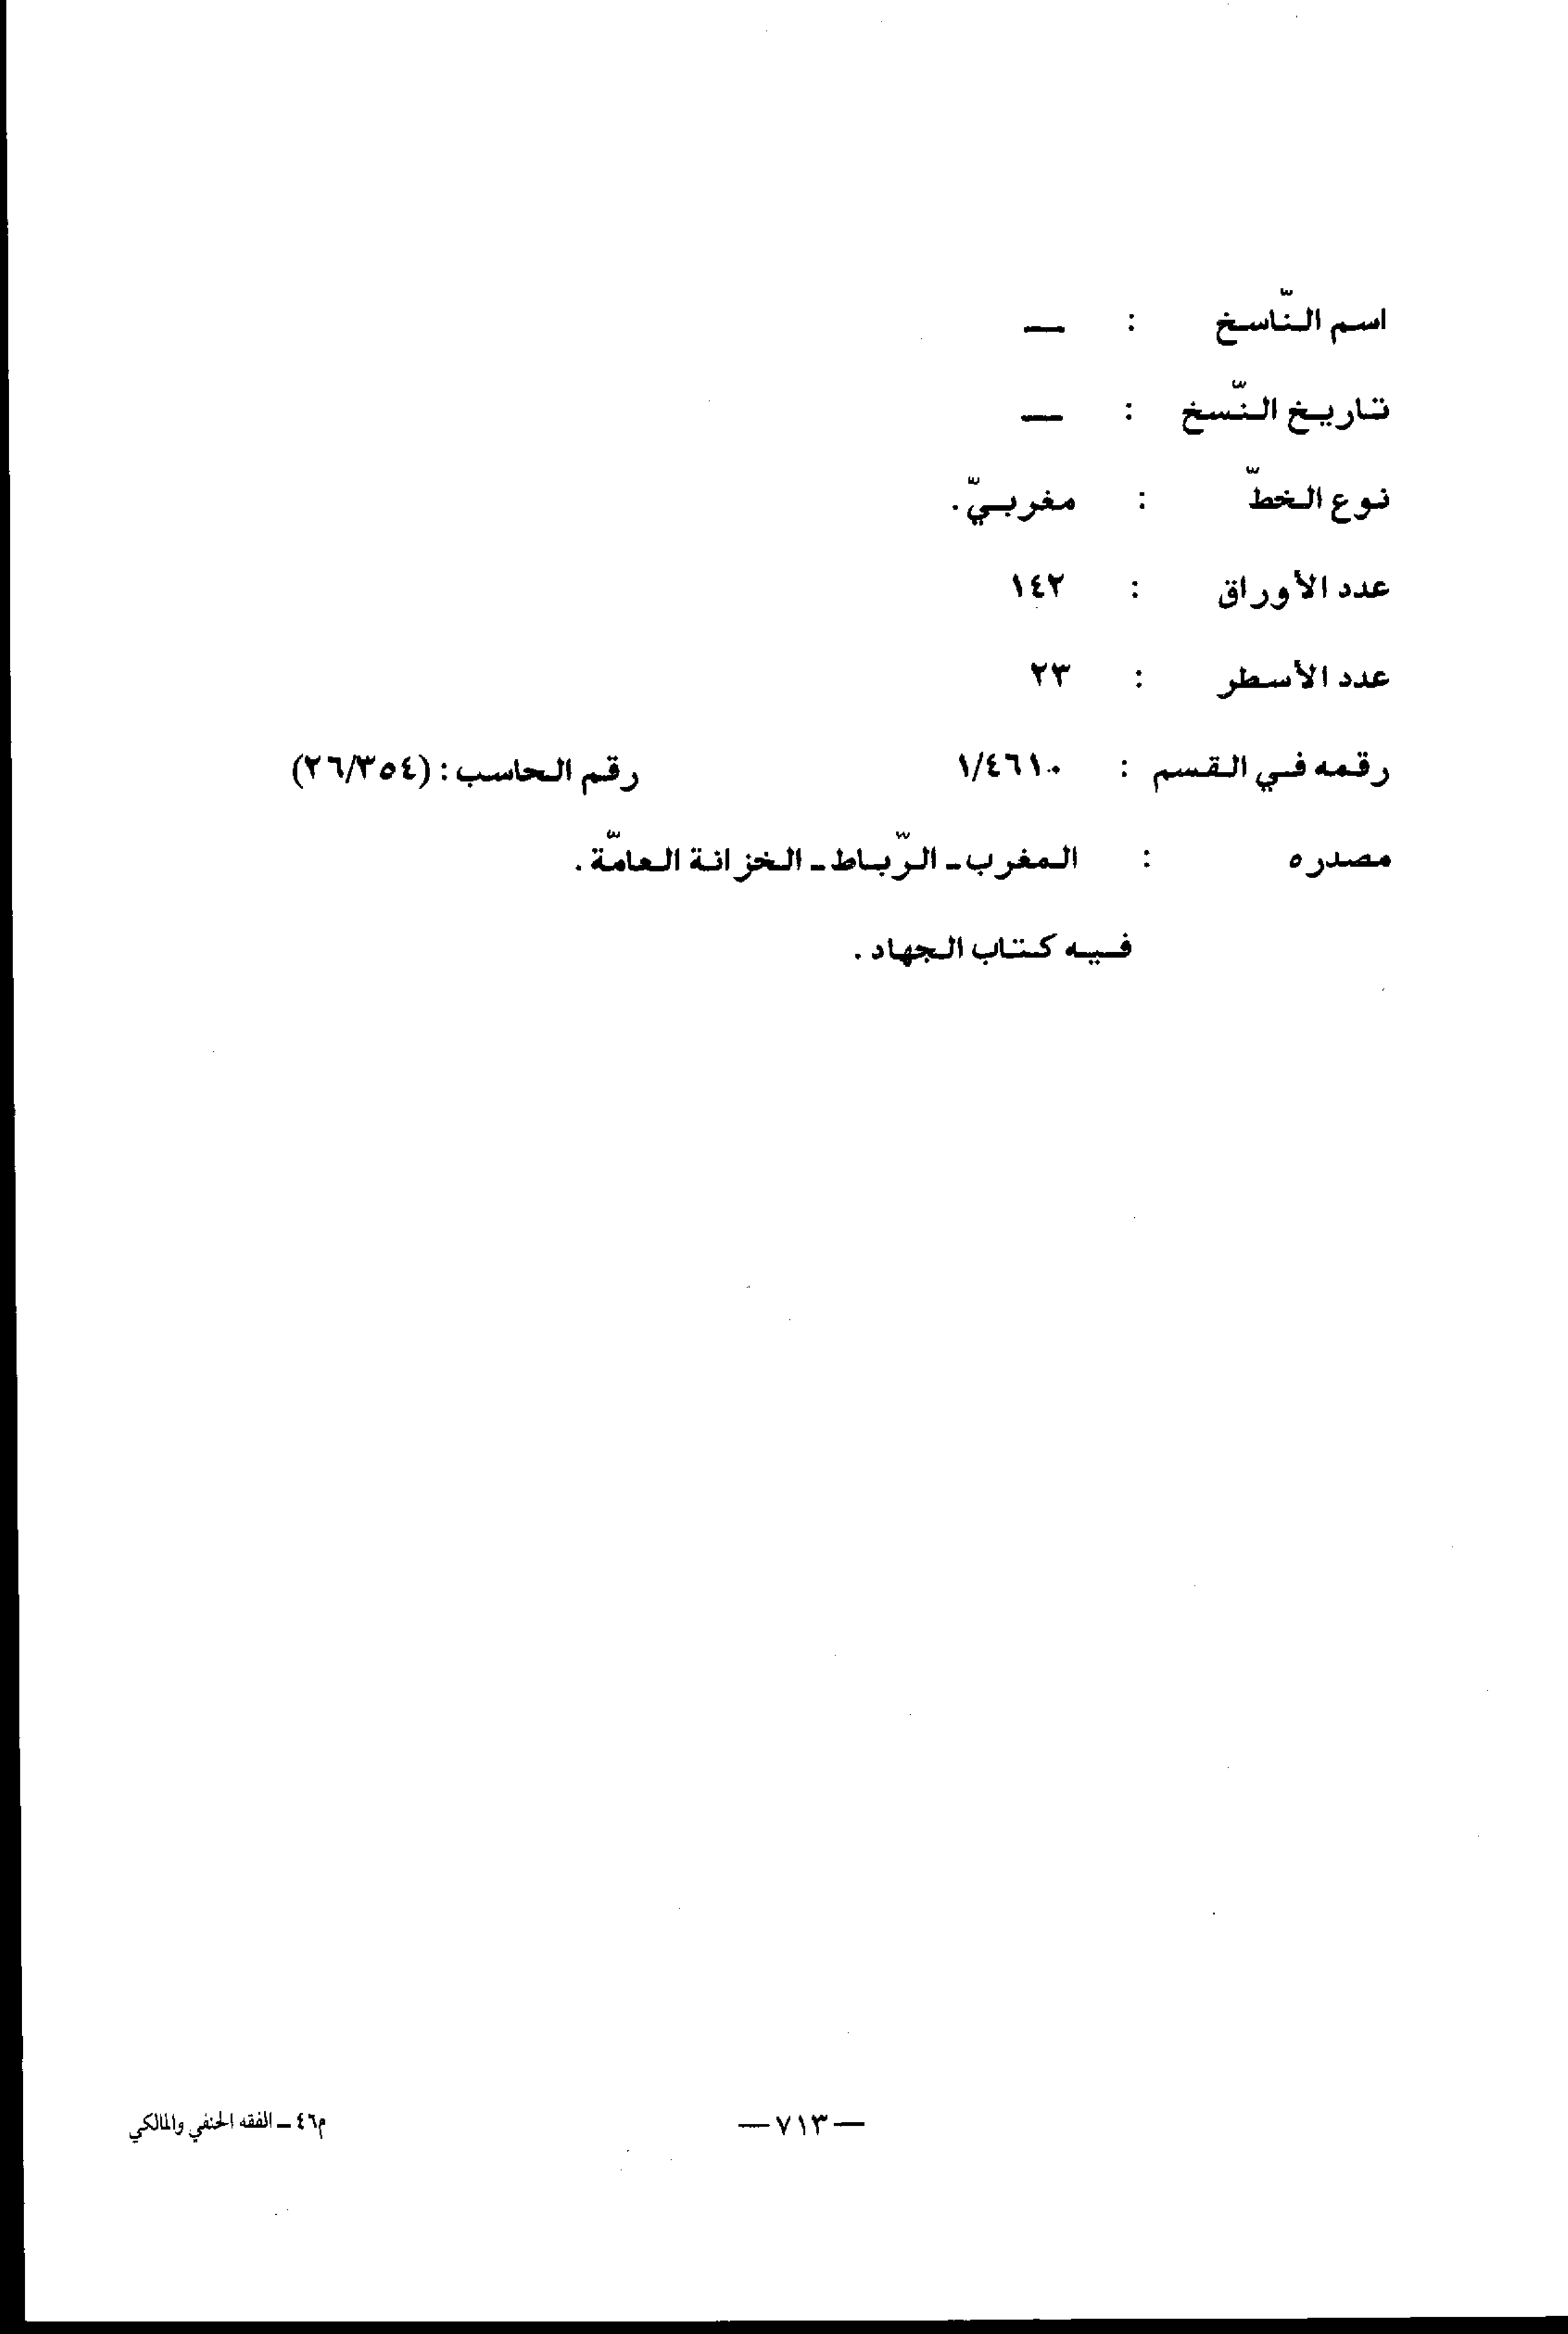 اسم النّاسخ : —
تاريخ النّسخ : —
نوع الخطّ : مغربيّ.
عدد الأوراق : ١٤٢
عدد الأسطر : ٢٣
رقمه في القسم : ١/٤٦١٠ رقم الحاسب : (٢٦/٣٥٤)
مصدره : المغرب ـ الرّباط ـ الخزانة العامّة .
فيه كتاب الجهاد .
— ٧١٣ —
م٤٦ ـ الفقه الحنفي والمالكي